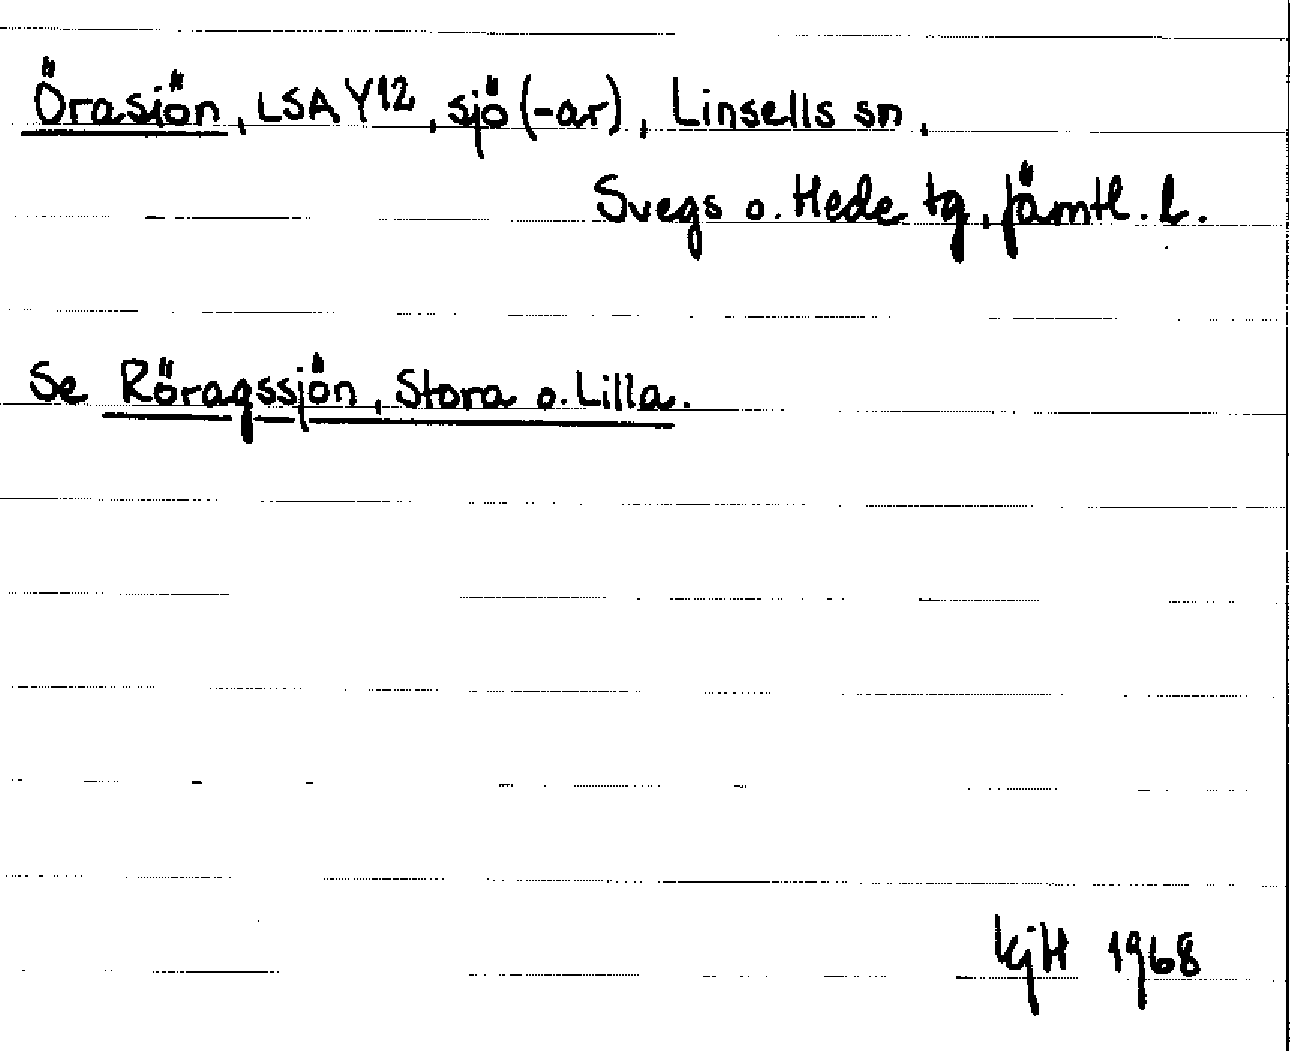 Örasiön, LSA Y12, sjö (-ar), Linsells sn,
Svegs o. Hede tg, Jämtl. l.
Se Röragssjön, Stora o. Lilla.
KjH 1968